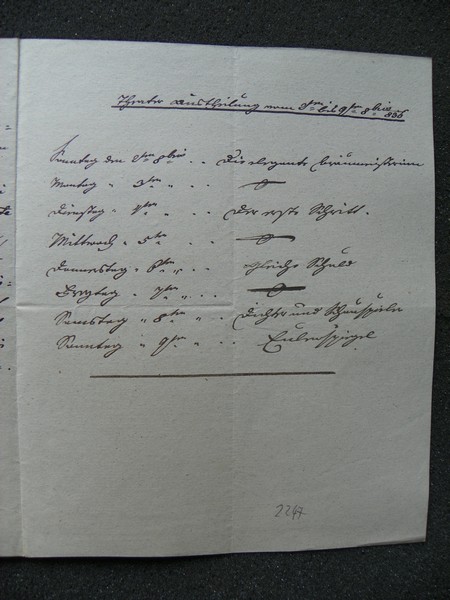 Theater Austheilung vom 2ten bis 9ten 8bris 836
Sonntag den 2ten 8bris . . Die elegante Bräumeisterin
Montag " 3ten " . . —
Dienstag " 4ten " . . Der erste Schritt.
Mittwoch " 5ten " . . —
Donnerstag " 6ten " . . gleiche Schuld
Freytag " 7ten " . . —
Samstag " 8ten " . . Dichter und Schauspieler
Sonntag " 9ten " . . Eulenspiegel